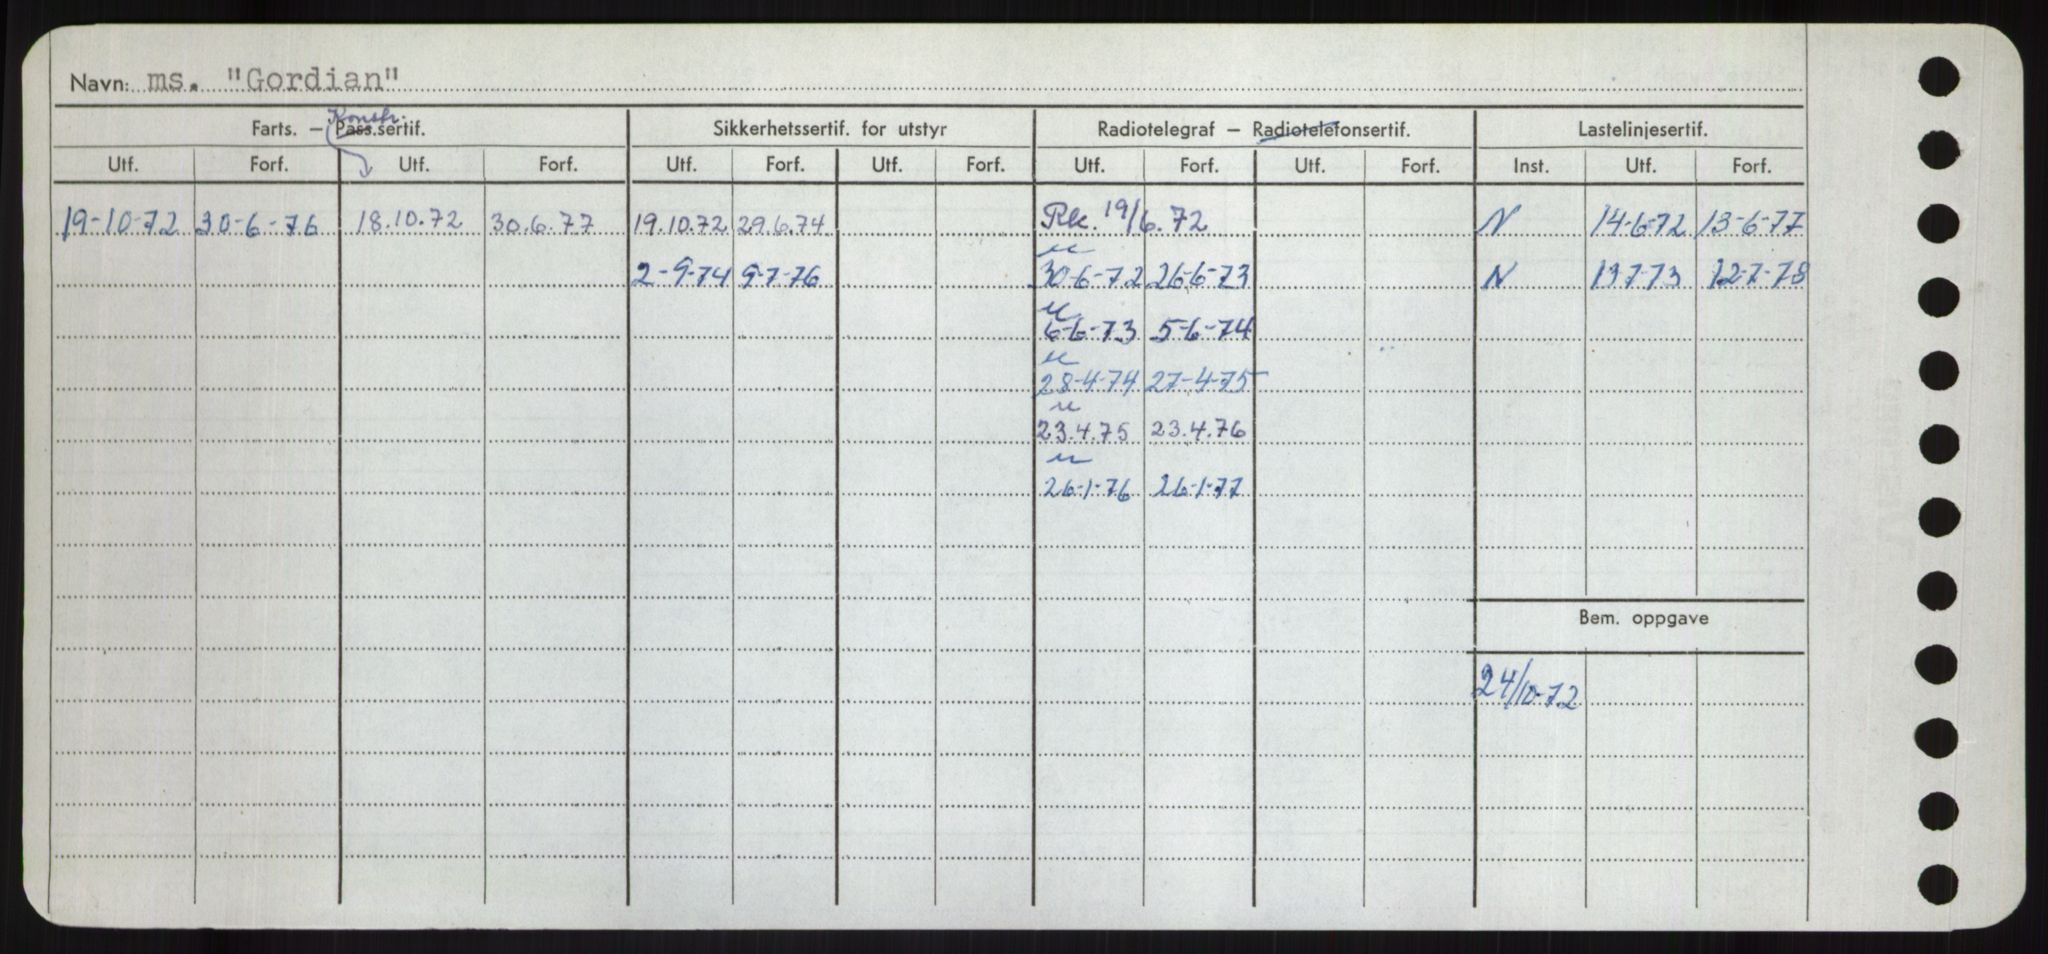 Navn: ms. "Gordian"
Konstr.
Farts. – Pass.sertif. Sikkerhetssertif. for utstyr Radiotelegraf – Radiotelefonsertif. Lastelinjesertif.
Utf. Forf. Utf. Forf. Utf. Forf. Utf. Forf. Utf. Forf. Utf. Forf. Inst. Utf. Forf.
19-10-72 30-6-76 18.10.72 30.6.77 19.10.72 29.6.74 Rk. 19/6.72 N 14-6-72 13-6-77
u
2-9-74 9-7-76 30-6-72 26-6-73 N 13-7-73 12-7-78
u
6-6-73 5-6-74
u
28-4-74 27-4-75
u
23.4.75 23.4.76
u
26-1-76 26-1-77
Bem. oppgave
24/10-72